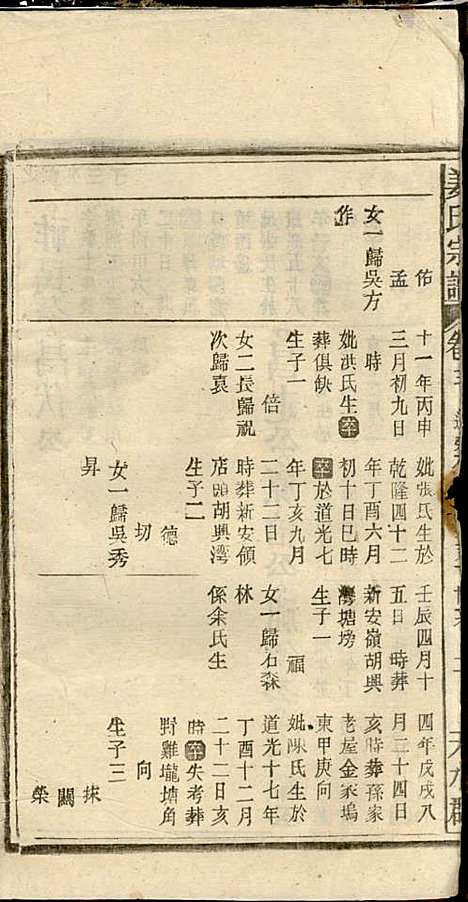 姜氏宗譜
天水郡
佑
孟
女一歸吳方
作
十一年丙申
三月初九日
時
妣洪氏生卒
葬俱缺
生子一
倍
女二長歸祝
次歸袁
妣張氏生於
乾隆四十二
年丁酉六月
初十日巳時
卒於道光七
年丁亥九月
二十二日
時葬新安領
店頭胡興灣
生子二
德
切
女一歸吳秀
昇
壬辰四月十
五日 時葬
新安嶺胡興
灣塘塝
生子一
福
女一歸石森
林
係余氏生
四年戊戌八
月二十四日
亥時葬孫家
老屋金家塢
東甲庚向
妣陳氏生於
道光十七年
丁酉十二月
二十二日亥
時卒失考葬
野雞壠墈角
向
生子三
採
關
榮